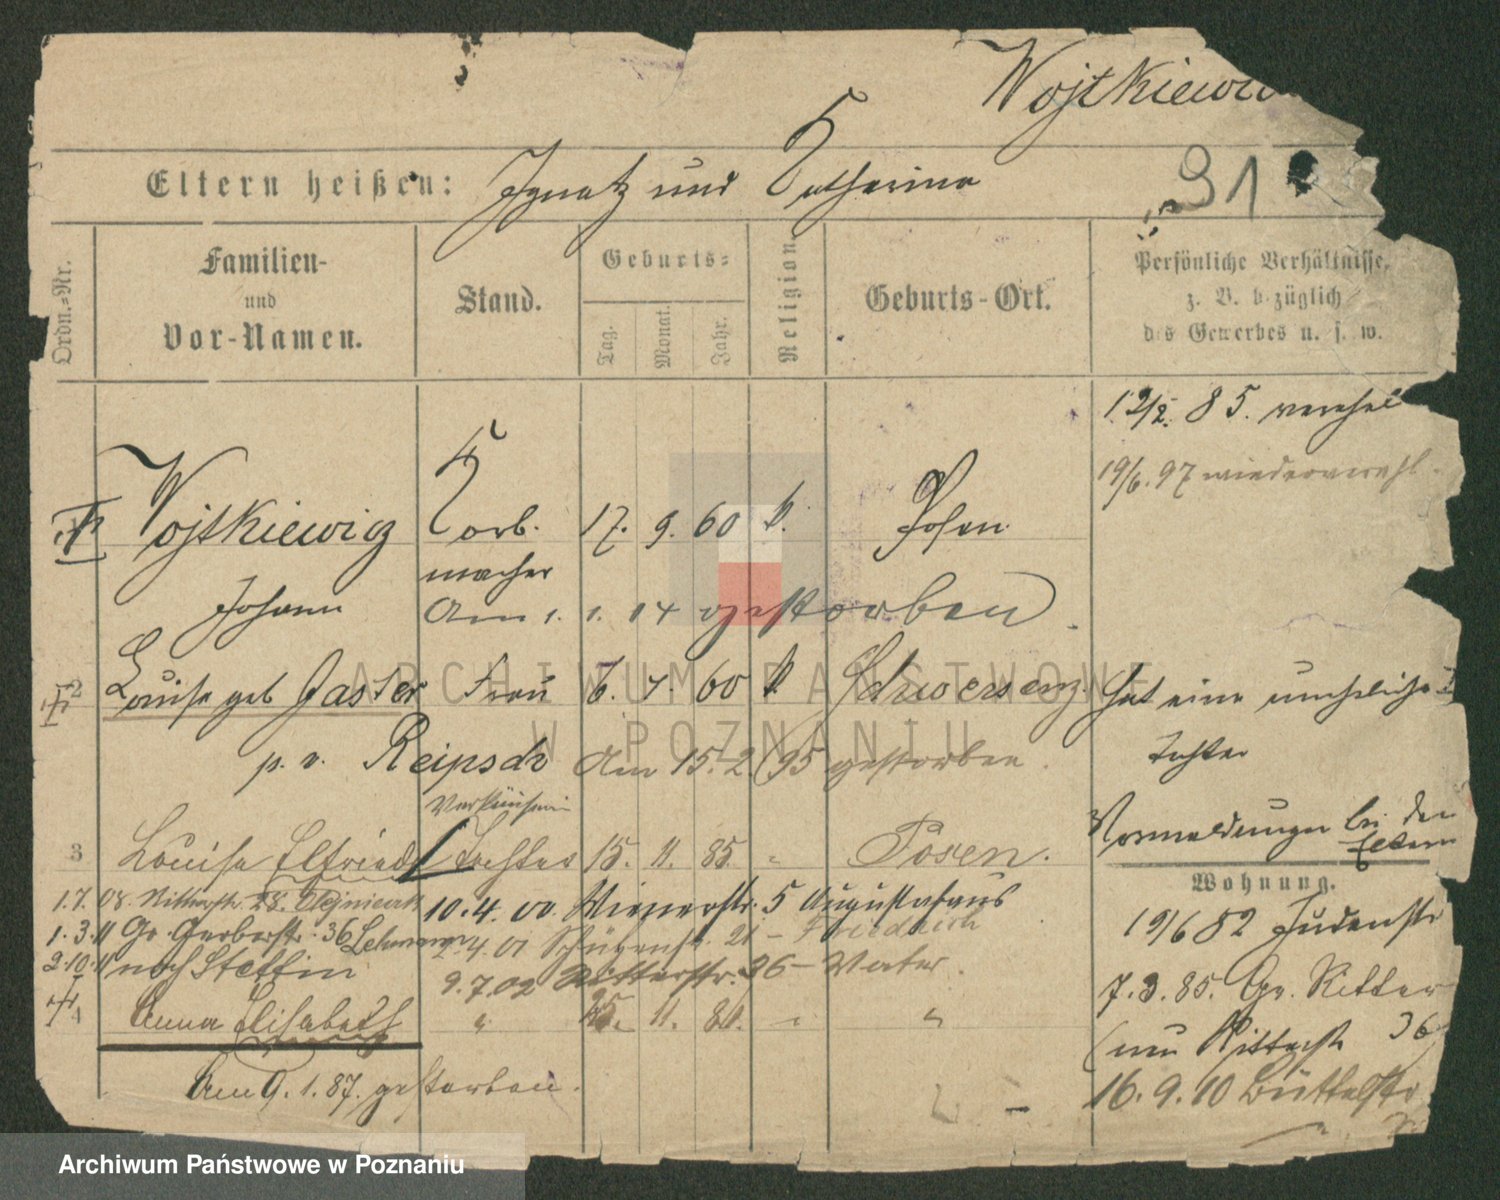 Wojtkiewic
Eltern heißen: Ignatz und Catharina
91
Ordn.=Nr.
Familien-
und
Vor-Namen.
Stand.
Geburts=
Tag.
Monat.
Jahr.
Religion
Geburts-Ort.
Persönliche Verhältnisse,
z. B. bezüglich
des Gewerbes u. s. w.
12/2. 85. verehel
19/6. 97 wiederverehl.
Wojtkiewicz Korb- 17. 9. 60 k. Posen
macher
Johann Am 1. 1. 14 gestorben.
2 Louise geb Jaster Frau 6. 7. 60 k. Schwersenz. Hat eine uneheliche
Tochter
p. v. Reipsch Am 15. 2. 95 gestorben.
Verkäuferin
Vormeldungen bei den
Eltern
3 Louise Elfriede Tochter 15. 11. 85. " Posen.
Wohnung.
1.7.08. Ritterstr. 28.
10.4.00. Wienerstr. 5 Augustahaus
1.3.11 Gr. Gerberstr. 36 Lehmann
4.01 Schützenstr. 21 - Friedrich
2.10.11 nach Stettin
9.7.02 Ritterstr. 36 - Vater.
19/6 82 Judenstr
7.3.85. Gr. Ritter
(nun Ritterstr 36
16.9.10 Büttelstr
4 Anna Elisabeth " 25. 11. 86. " "
Am 9. 1. 87. gestorben.
ARCHIWUM PAŃSTWOWE
W POZNANIU
Archiwum Państwowe w Poznaniu